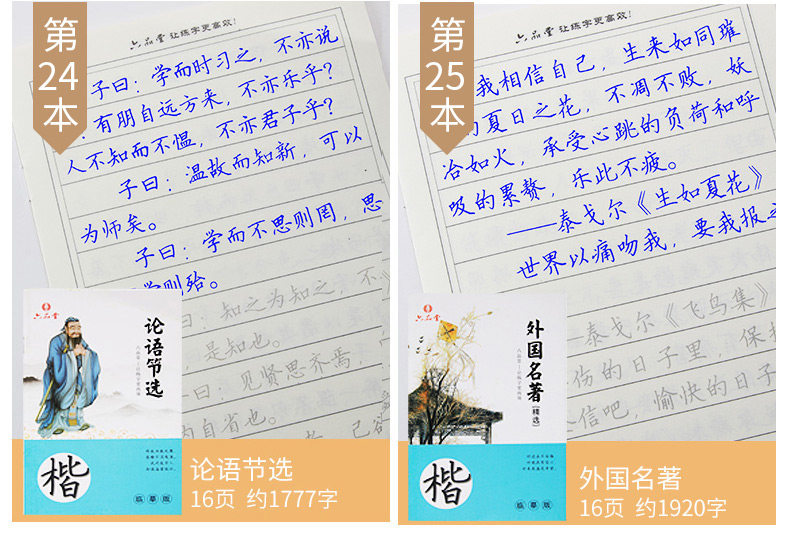 第
24
本
六品堂 让练字更高效！
子曰：学而时习之，不亦说
有朋自远方来，不亦乐乎？
人不知而不愠，不亦君子乎？
子曰：温故而知新，可以
为师矣。
子曰：学而不思则罔，思
学则殆。
曰：知之为知之，不
是知也。
曰：见贤思齐焉，
内自省也。
六品堂
论语节选
楷
临摹版
论语节选
16页 约1777字
第
25
本
六品堂 让练字更高效！
我相信自己，生来如同璀
的夏日之花，不凋不败，妖
冶如火，承受心跳的负荷和呼
吸的累赘，乐此不疲。
——泰戈尔《生如夏花》
世界以痛吻我，要我报之
泰戈尔《飞鸟集》
伤的日子里，保持
信吧，愉快的日子
六品堂
外国名著
[精选]
楷
临摹版
外国名著
16页 约1920字